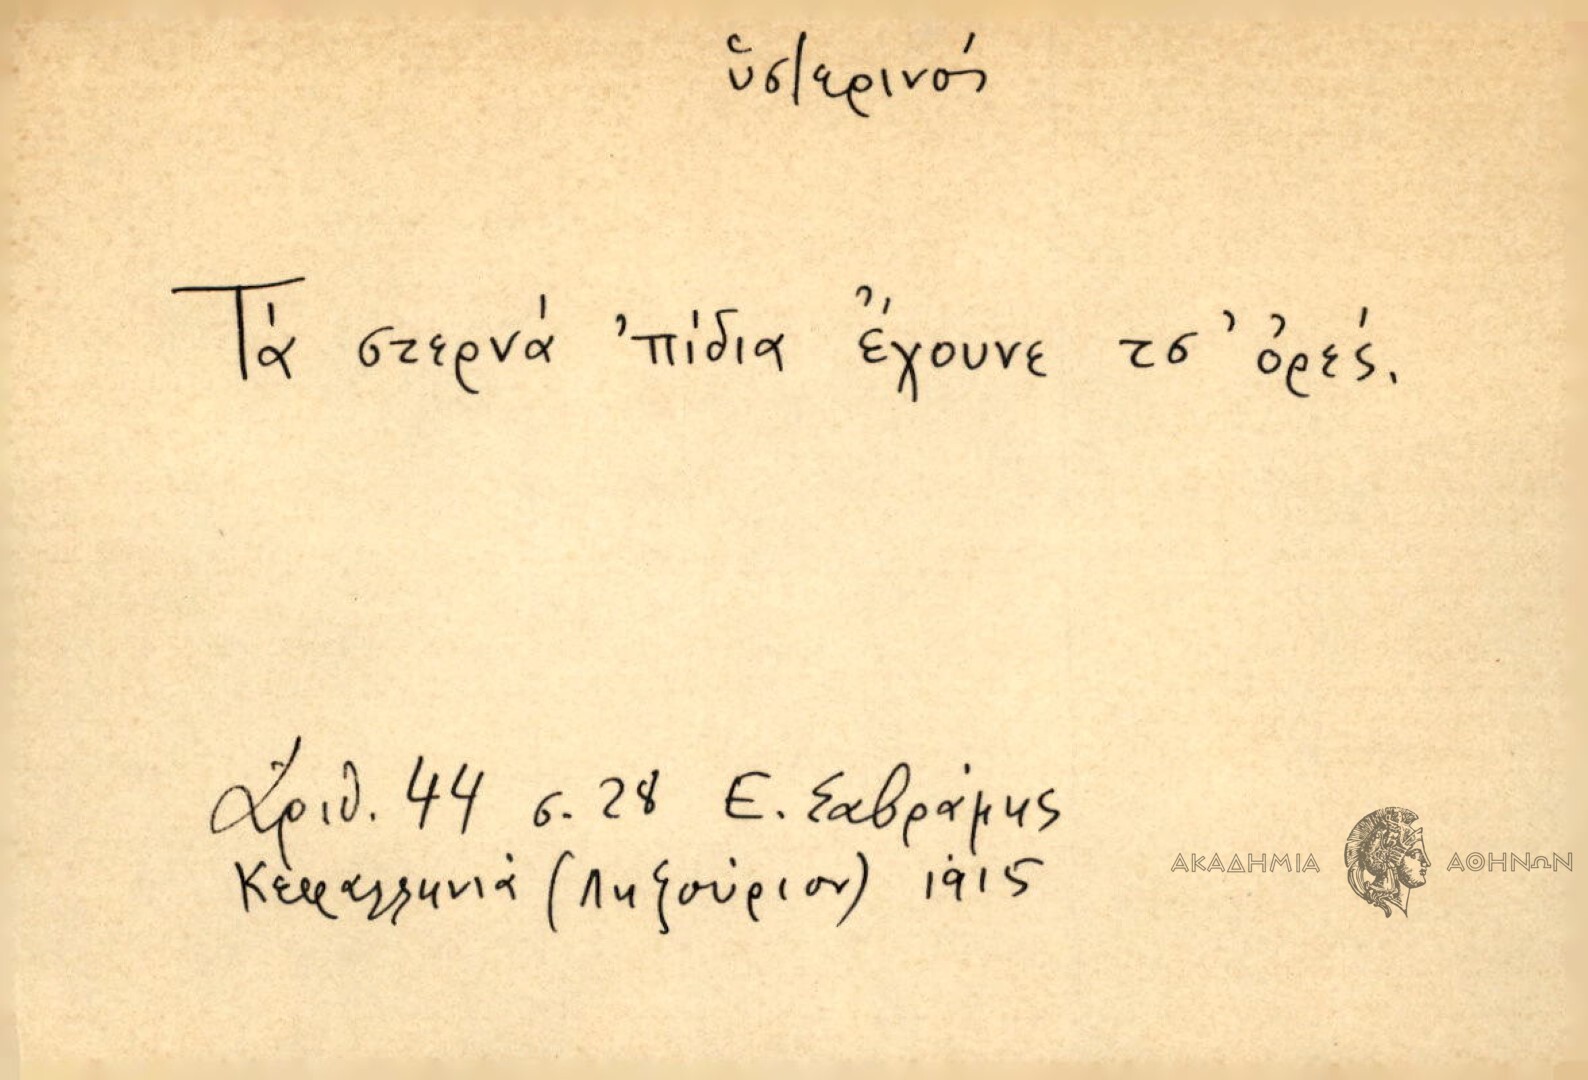 ὑστερινός
Τά στερνά ᾿πίδια ἔχουνε τσ᾿ ὀρές.
Ἀριθ. 44 σ. 28 Ε. Σαβράμης
Κεφαλληνιά (Ληξούριον) 1915
ΑΚΑΔΗΜΙΑ ΑΘΗΝΩΝ